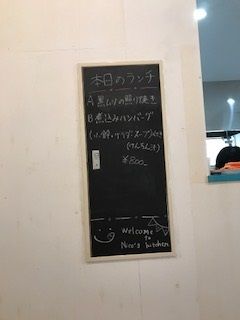 本日のランチ
A 黒ムツの照り焼き
B 煮込みハンバーグ
(小鉢・サラダ・スープ)付き
(けんちん汁)
¥800-
Welcome
to
Nico's kitchen